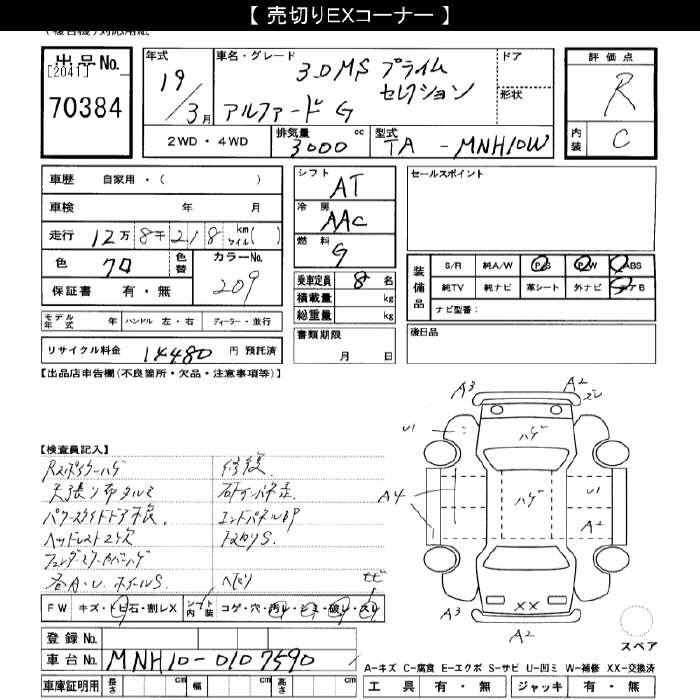 【 売切りEXコーナー 】
出品No.
[2041]
70384
年式
19/3月
車名・グレード
3.0MS プライム
セレクション
アルファード G
ドア
形状
評価点
R
内装
C
2WD・4WD
排気量
3000 cc
型式
TA - MNH10W
車歴 自家用・( )
車検 年 月
走行 12万8千218 km マイル( )
色 クロ
色替
カラーNo.
209
保証書 有・無
シフト
AT
冷房
AAC
燃料
G
セールスポイント
乗車定員 8 名
積載量 kg
総重量 kg
装備品
S/R 純A/W P/S P/W ABS
純TV 純ナビ 革シート 外ナビ エアB
ナビ型番:
モデル年式 年 ハンドル 左・右 ディーラー・並行
リサイクル料金 14480 円 預託済
書類期限
月 日
後日品
【出品店申告欄(不良箇所・欠品・注意事項等)】
【検査員記入】
修復.
天張り布タルミ
パワースライドドア不良.
エンドパネルBP
ヘッドレスト2ケ欠
フェンダーミラーカバーハゲ
各A.U. ホイールS.
A3
A2
U1
ハゲ
A4
ハゲ
U1
A2
A3
XX
A2
FW キズ・トビ石・割レX
シート内装 コゲ・穴・汚レ・シミ・破レ・スレ
登録No.
車台No. MNH10-0107590
車庫証明用 長さ cm 幅 cm 高さ cm
スペア
A-キズ C-腐食 E-エクボ S-サビ U-凹ミ W-補修 XX-交換済
工具 有・無 ジャッキ 有・無